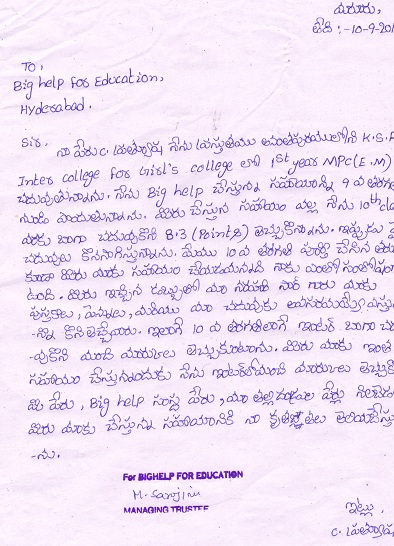 తేది :- 10-9-20
To,
Big help For Education,
Hyderabad.
Sir.
నా పేరు C. నేను ప్రస్తుతము అనంతపురములోని K.S.R
Inter college For Girl's college లో 1st year MPC(E.M)
చదువుతున్నాను. నేను Big help చేస్తున్న సహాయాన్ని 9వ తరగతి
నుండి పొందుతున్నాను. మీరు చేస్తున్న సహాయం వల్ల నేను 10th cla
బాగా చదువుకొని 8.3 (Points) తెచ్చుకొన్నాను. ఇప్పుడు పై
చదువులు కొనసాగిస్తున్నాను. మేము 10వ తరగతి పూర్తి చేసిన తరు
కూడా మీరు మాకు సహాయం చేయడమనేది నాకు ఎంతో సంతోషంగా
ఉంది. మీరు ఇచ్చిన డబ్బుతో మా సార్ గారు మాకు
పుస్తకాలు, పెన్నులు, మరియు మా చదువుకు
కొని తెచ్చినారు. ఇలాగే 10వ తరగతిలాగే ఇంటర్ బాగా చద
-వుకొని మంచి మార్కులు తెచ్చుకుంటాను. మీరు మాకు ఇంత
సహాయం చేస్తున్నందుకు నేను ఇంటర్‌లో మంచి మార్కులు తెచ్చుకొ
మీ పేరు, Big help సంస్థ పేరు, మా తల్లిదండ్రుల పేర్లు
మీరు మాకు చేస్తున్న సహాయానికి నా కృతజ్ఞతలు తెలియజేస్తు
-ను.
For BIGHELP FOR EDUCATION
MANAGING TRUSTEE
ఇట్లు
C.